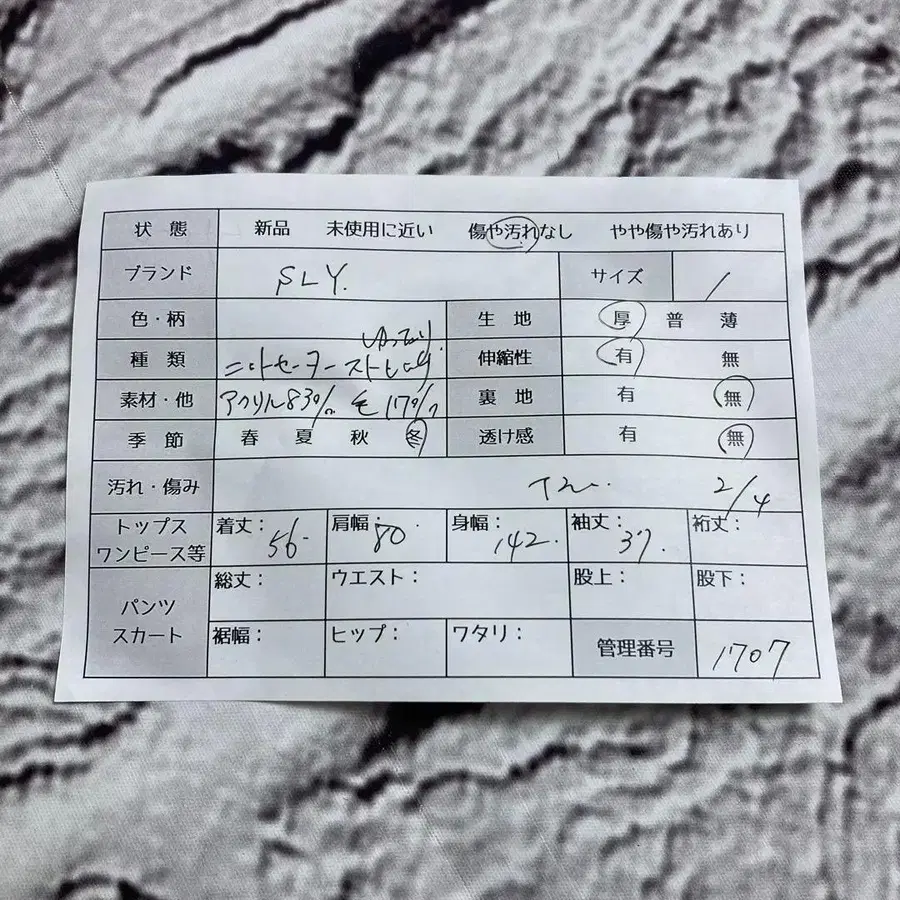 状態 新品 未使用に近い 傷や汚れなし やや傷や汚れあり
ブランド SLY. サイズ 1
色・柄 生地 厚 普 薄
ゆったり
種類 ニットセーター 伸縮性 有 無
素材・他 アクリル83% 毛17% 裏地 有 無
季節 春 夏 秋 冬 透け感 有 無
汚れ・傷み 2/4
トップス ワンピース等 着丈: 56 肩幅: 80 身幅: 142. 袖丈: 37. 裄丈:
パンツ スカート 総丈: ウエスト: 股上: 股下:
裾幅: ヒップ: ワタリ: 管理番号 1707